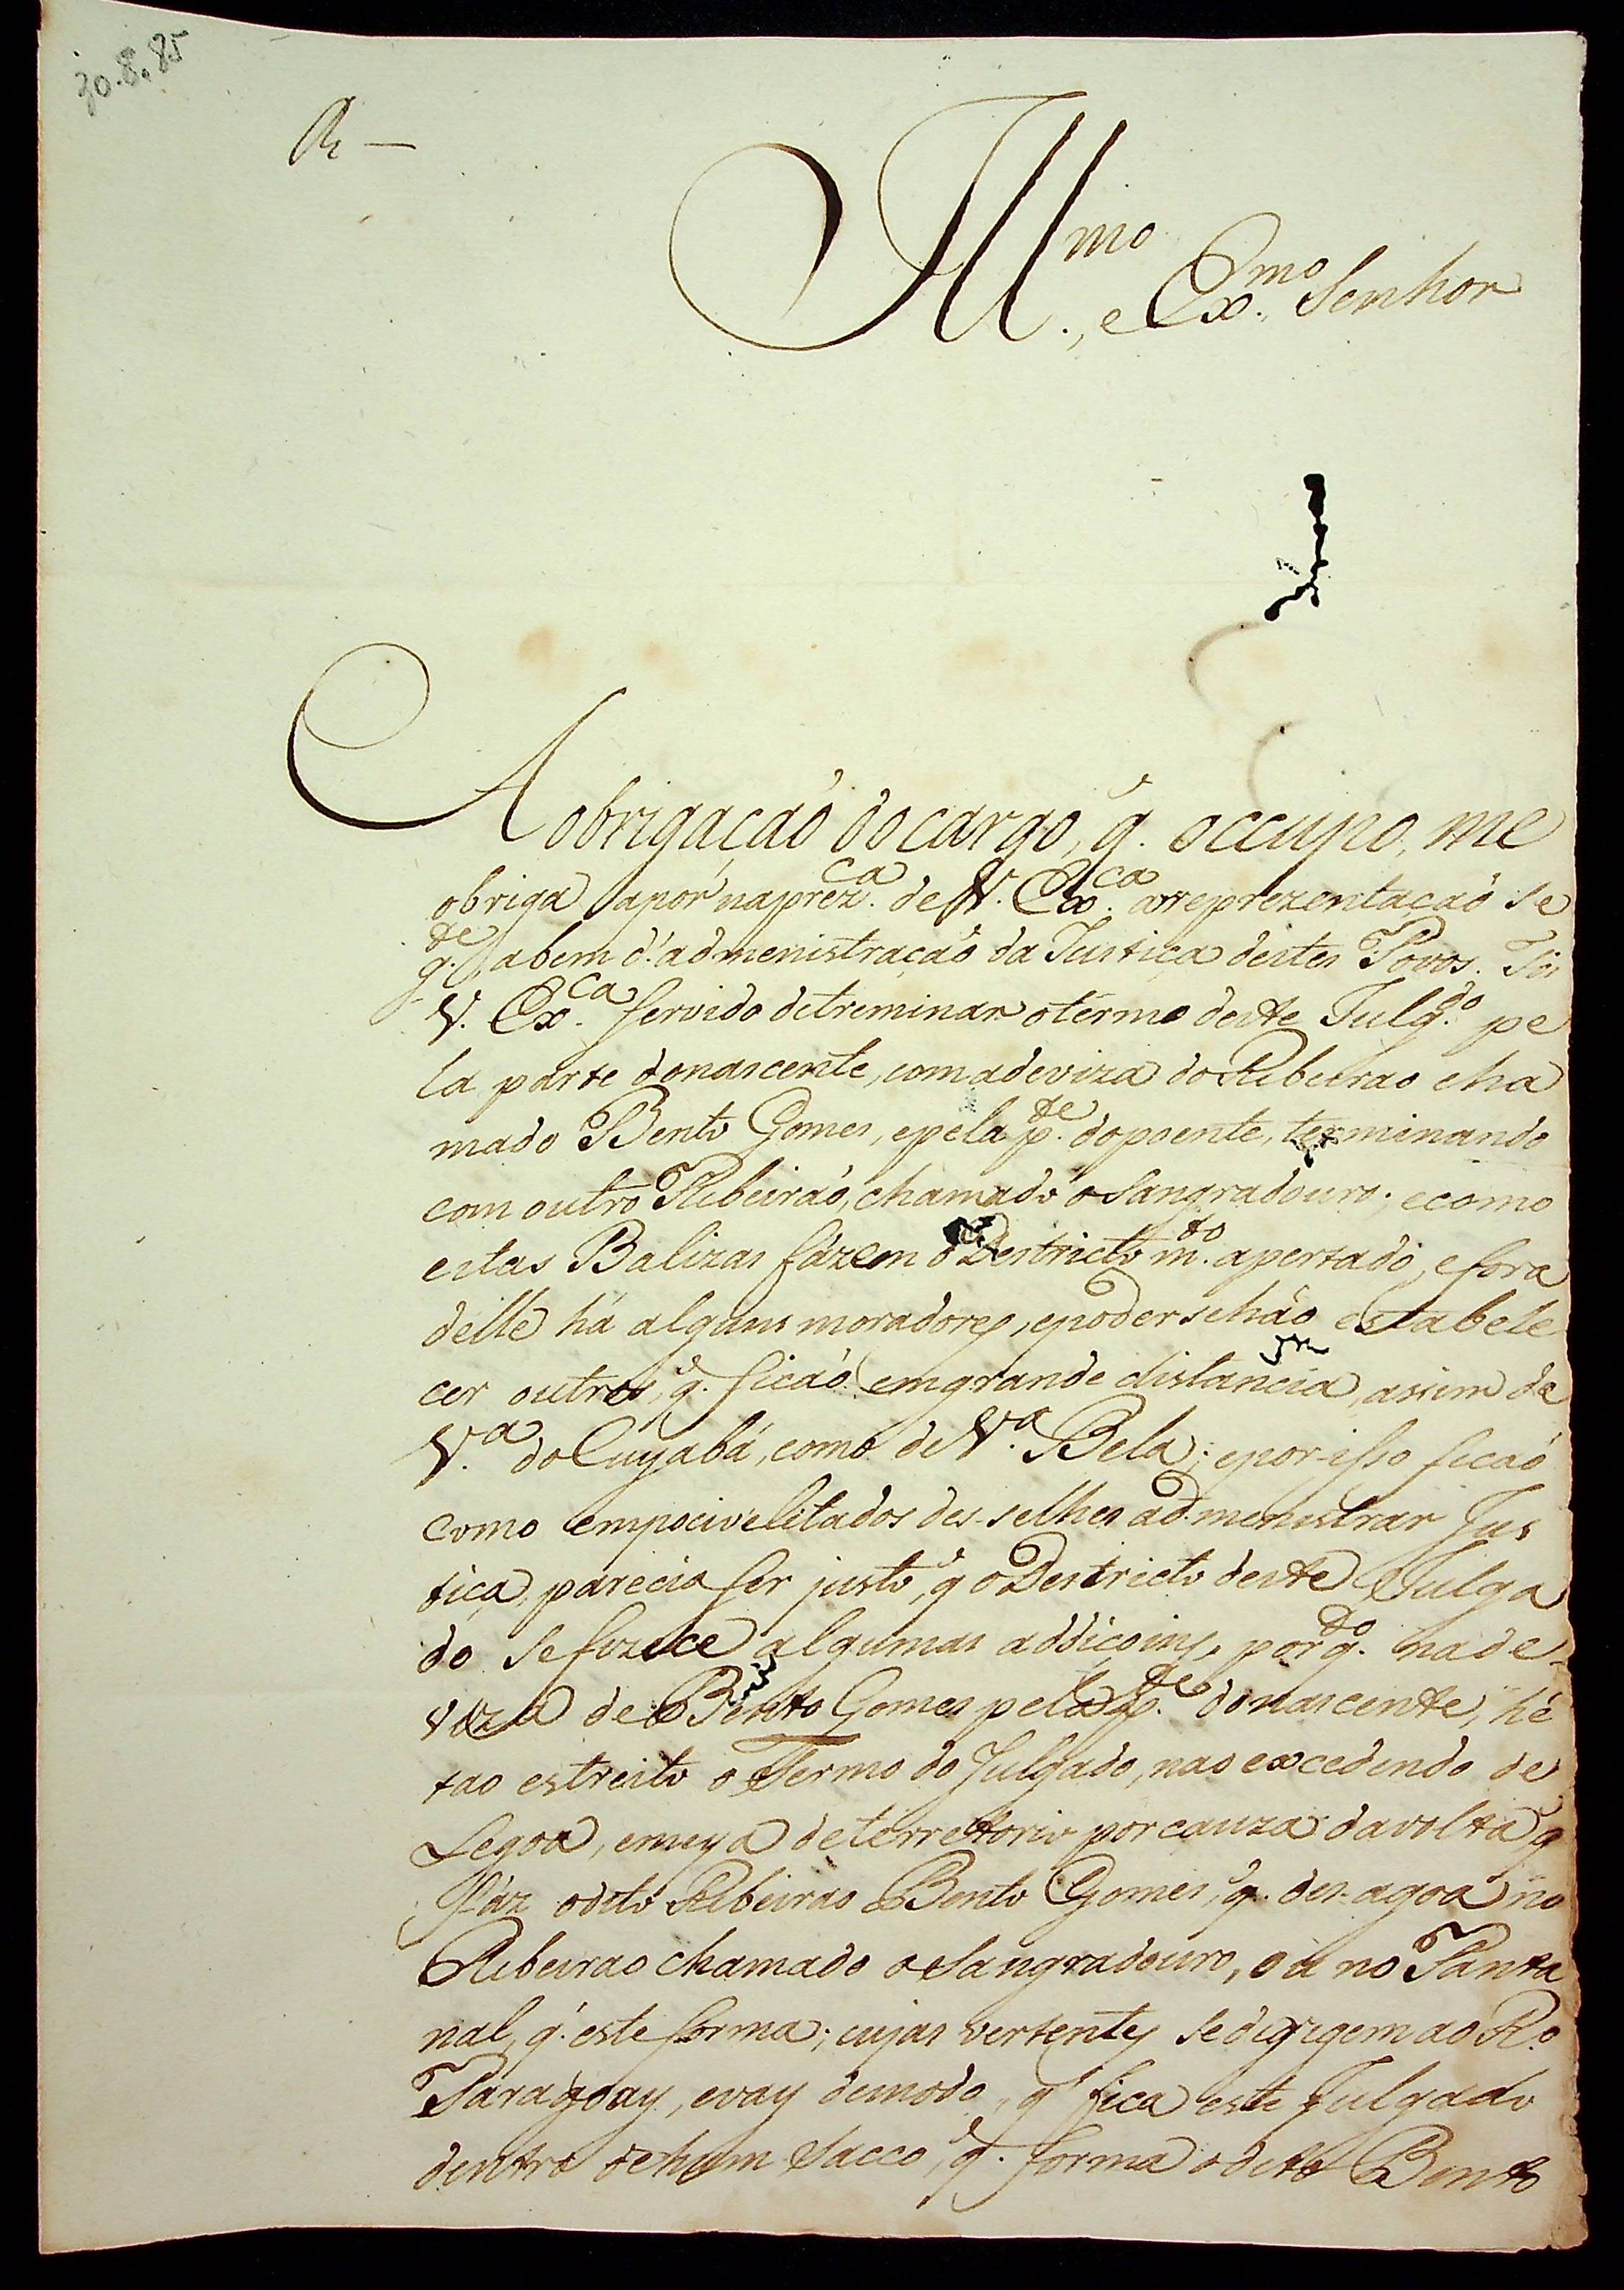 30.8.85
R —
Ill.mo, e Ex.mo Senhor
A obrigaçaõ do cargo, q. occupo, me
obriga apór na prez.ca de V. Ex.ca a reprezentaçaõ se
g.te abem d'admenistraçaõ da Justiça destes Povos. Foi
V. Ex.ca servido detreminar o termo deste Julg.do pe
la parte do nascente, com adeviza do Ribeirao cha
mado Bento Gomes, epela p.te do poente, terminando
com outro Ribeiraõ, chamado o Sangradouro; ecomo
estas Balizas fázem o Destricto m.to apertado, efora
delle há alguns moradores, epoderselháo estabele
cer outros, q. ficaõ em grande distancia, assim da
V.a do Cuyabá, como de V.a Bela; epor-isso ficaõ
como empocivelitados des-selhes ad-menistrar Jus
tiça, parecia ser justo, q o Destricto deste Julga
do se fizece algumas addicoins, porq.do na de-
viza de Bento Gomes pela p.te do nascente, hé
tao estreito o Termo do Julgado, nao excedendo de
Legoa, emeya de terretorio por cauza da volta q
fáz o dito Ribeirao Bento Gomes, q. des-agoa no
Ribeirao chamado o Sangradouro, ou no Panta
nal, q. este forma; cujas vertentes se dirigem ao R.o
Paragoay, evay demodo, q fica este Julgado
dentro de hum Sacco, q. forma o dito Bento